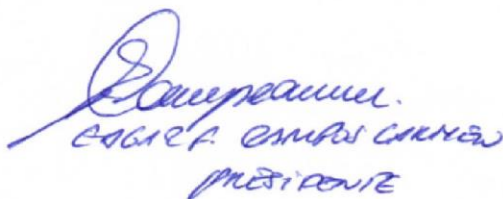 EDGAR F. CAMPOS CARMEN
PRESIDENTE